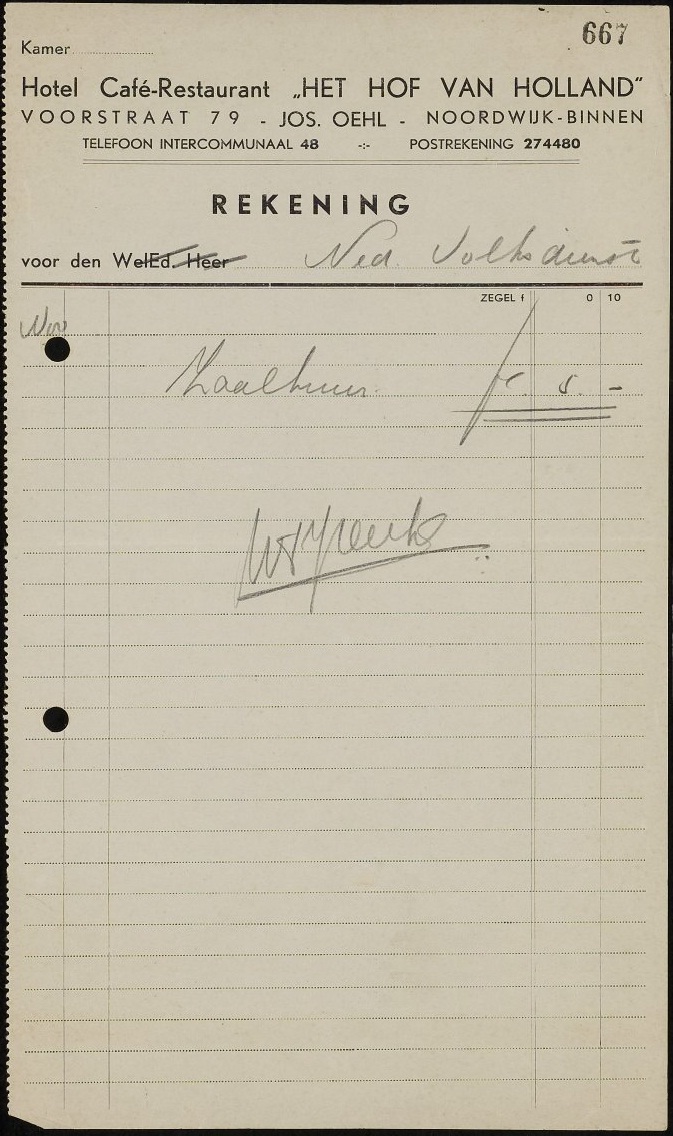 667
Kamer
Hotel Café-Restaurant „HET HOF VAN HOLLAND"
VOORSTRAAT 79 - JOS. OEHL - NOORDWIJK-BINNEN
TELEFOON INTERCOMMUNAAL 48 -:- POSTREKENING 274480
REKENING
voor den WelEd. Heer Ned. Volksdienst
ZEGEL f 0 10
Nov
Zaalhuur f 5. -